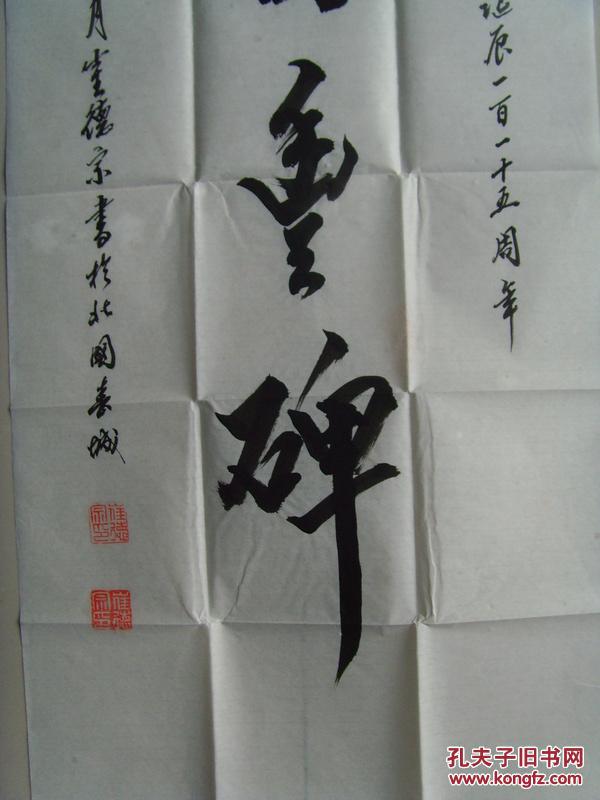 诞辰一百一十五周年
豐碑
月崔德宗書於北國春城
崔德宗印
崔德宗印
孔夫子旧书网
www.kongfz.com